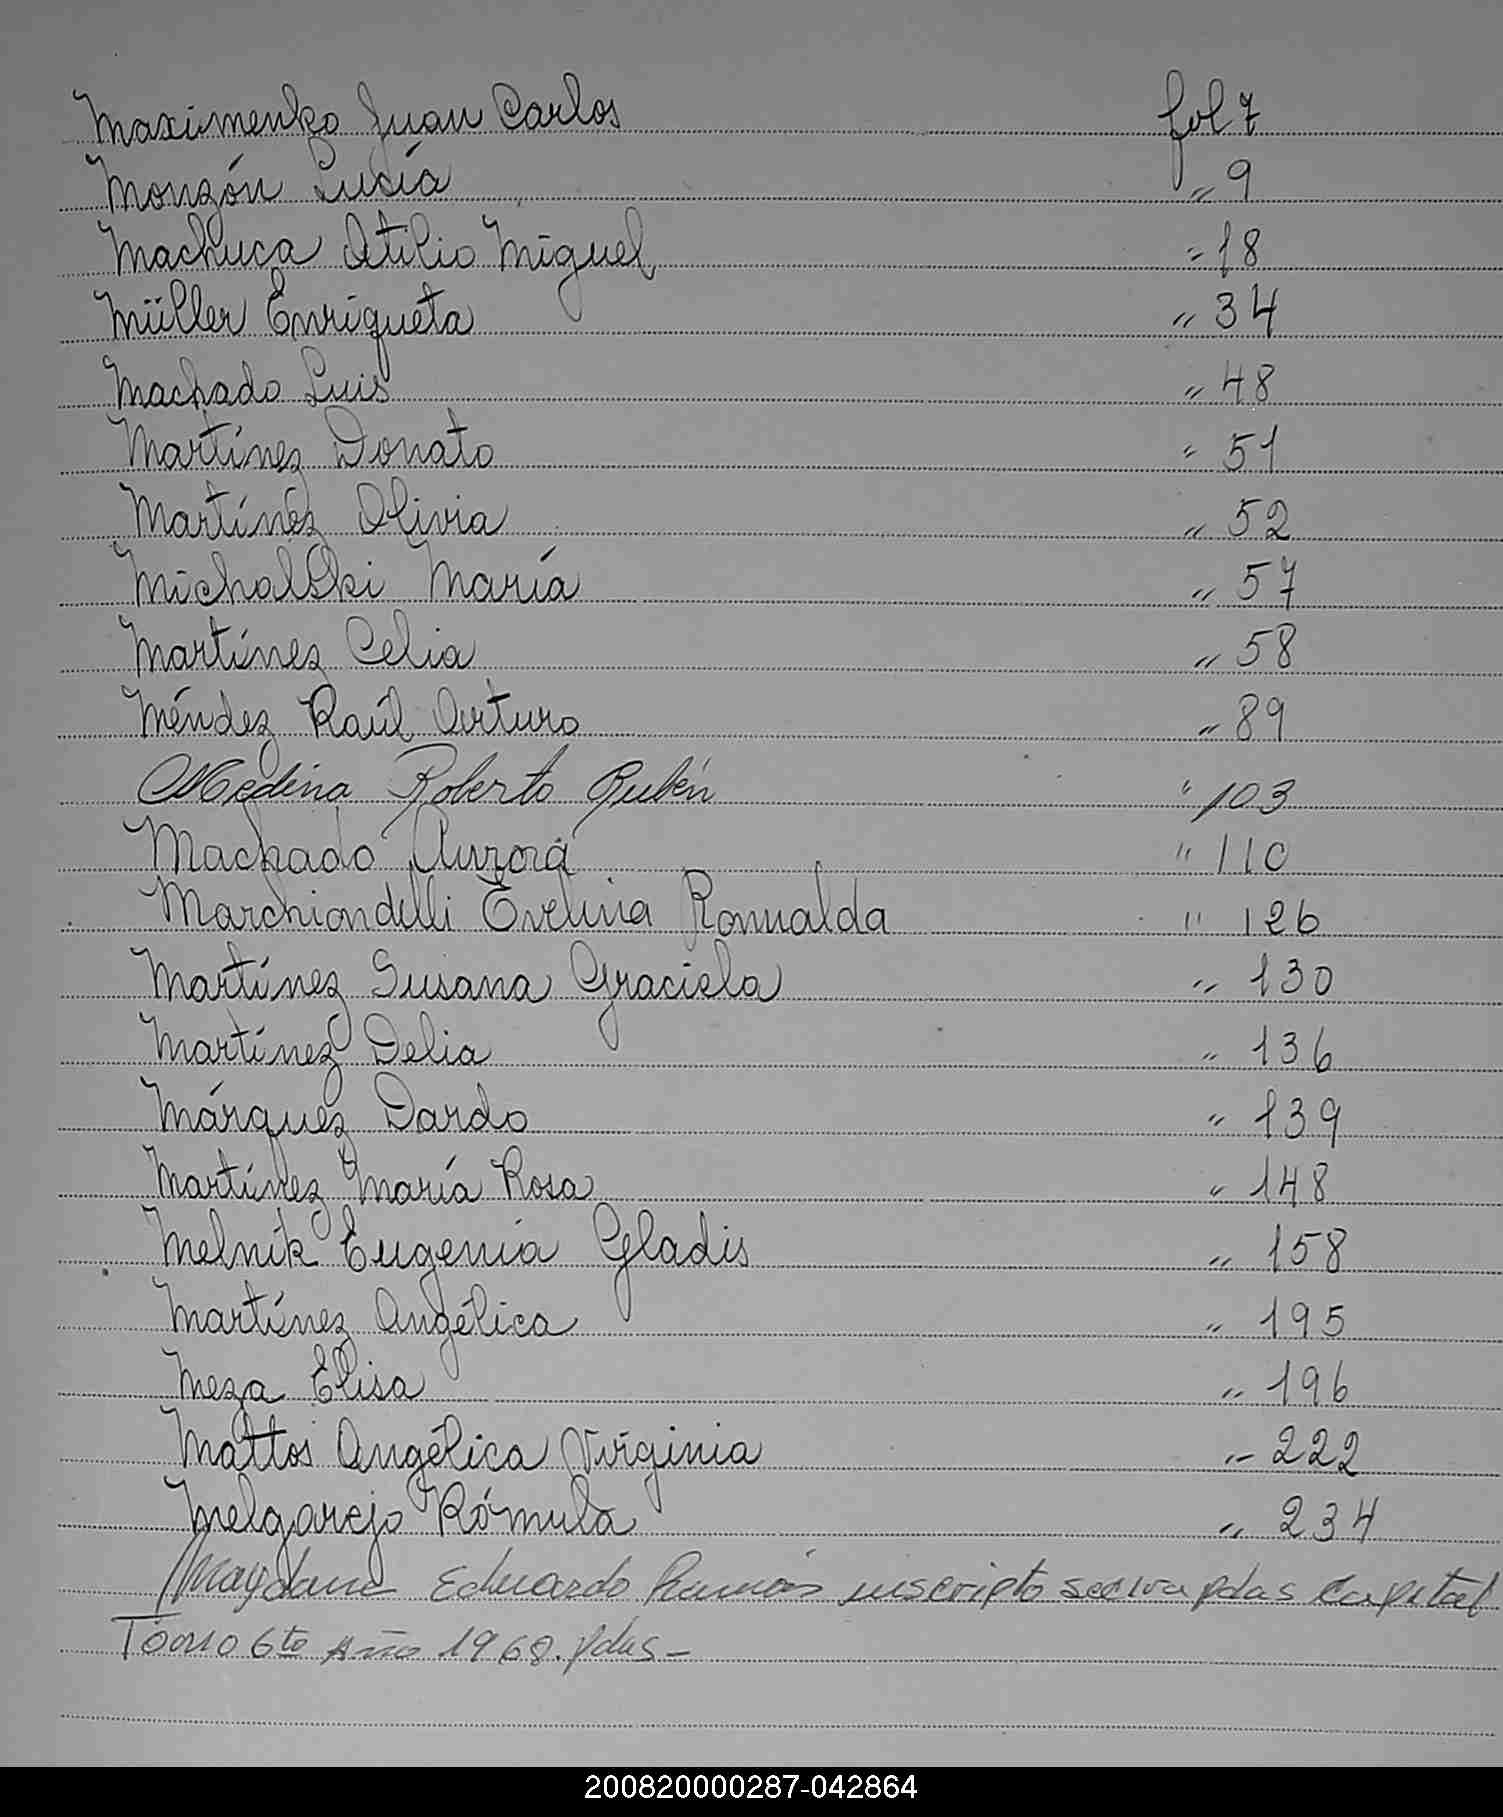 Maximenko Juan Carlos fol 7
Monzón Lucía " 9
Machuca Atilio Miguel " 18
Müller Enriqueta " 34
Machado Luis " 48
Martínez Donato " 51
Martínez Olivia " 52
Michalski María " 57
Martínez Celia " 58
Méndez Raúl Arturo " 89
Medina Roberto Rubén " 103
Machado Aurora " 110
Marchiondelli Evelina Romualda " 126
Martínez Susana Graciela " 130
Martínez Delia " 136
Márquez Dardo " 139
Martínez María Rosa " 148
Melnik Eugenia Gladis " 158
Martínez Angélica " 195
Meza Elisa " 196
Mattos Angélica Virginia " 222
Melgarejo Rómula " 234
Eduardo Ramón inscripto pdas Capital
Tomo 6to Año 1968. pdas-
200820000287-042864